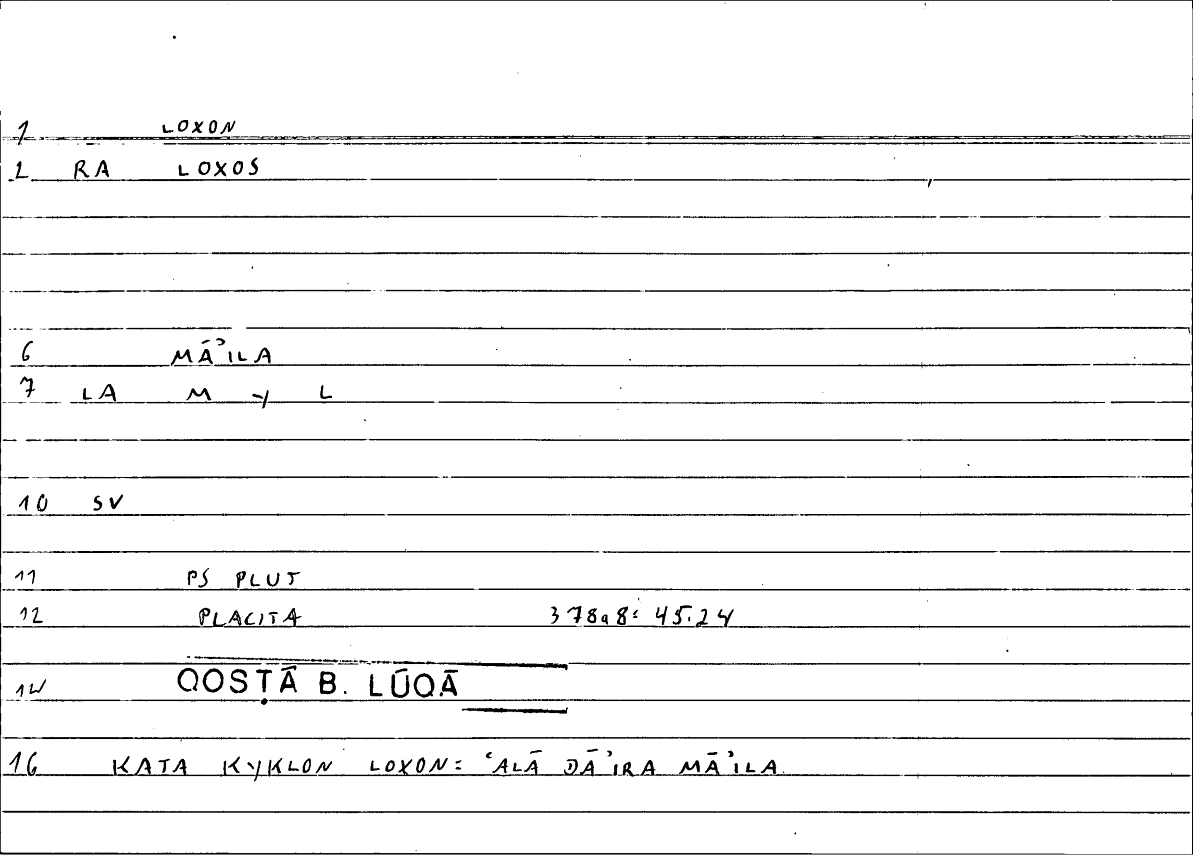 1 LOXON
2 RA LOXOS
6 MĀʾILA
7 LA M Y L
10 SV
11 PS PLUT
12 PLACITA 378a8: 45.24
14 QOSṬĀ B. LŪQĀ
16 KATA KYKLON LOXON: ʿALĀ DĀʾIRA MĀʾILA